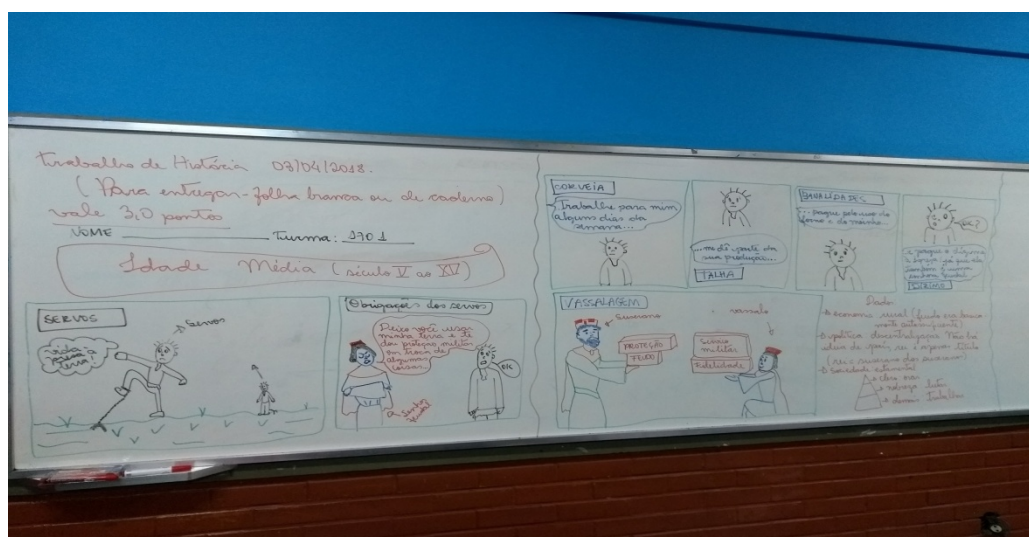 Trabalho de História 03/04/2018.
(Para entregar - folha branca ou de caderno)
vale 3,0 pontos
NOME Turma: 1701
Idade Média (século V ao XV)
SERVOS
Servos
terra!
Obrigações dos servos
Deixo você usar
minha terra e te
dou proteção militar
em troca de
algumas
coisas.
OK
Senhor
feudal
CORVEIA
Trabalhe para mim
alguns dias da
semana...
...me dê parte da
sua produção...
TALHA
BANALIDADES
...pague pelo uso do
forno e do moinho...
e pague o dízimo
à Igreja
DÍZIMO
VASSALAGEM
Suserano
vassalo
PROTEÇÃO
FEUDO
SERVIÇO
MILITAR
Fidelidade
economia rural (feudo era
política descentralizada
(rei = suserano dos suseranos)
Sociedade estamental
clero
nobreza